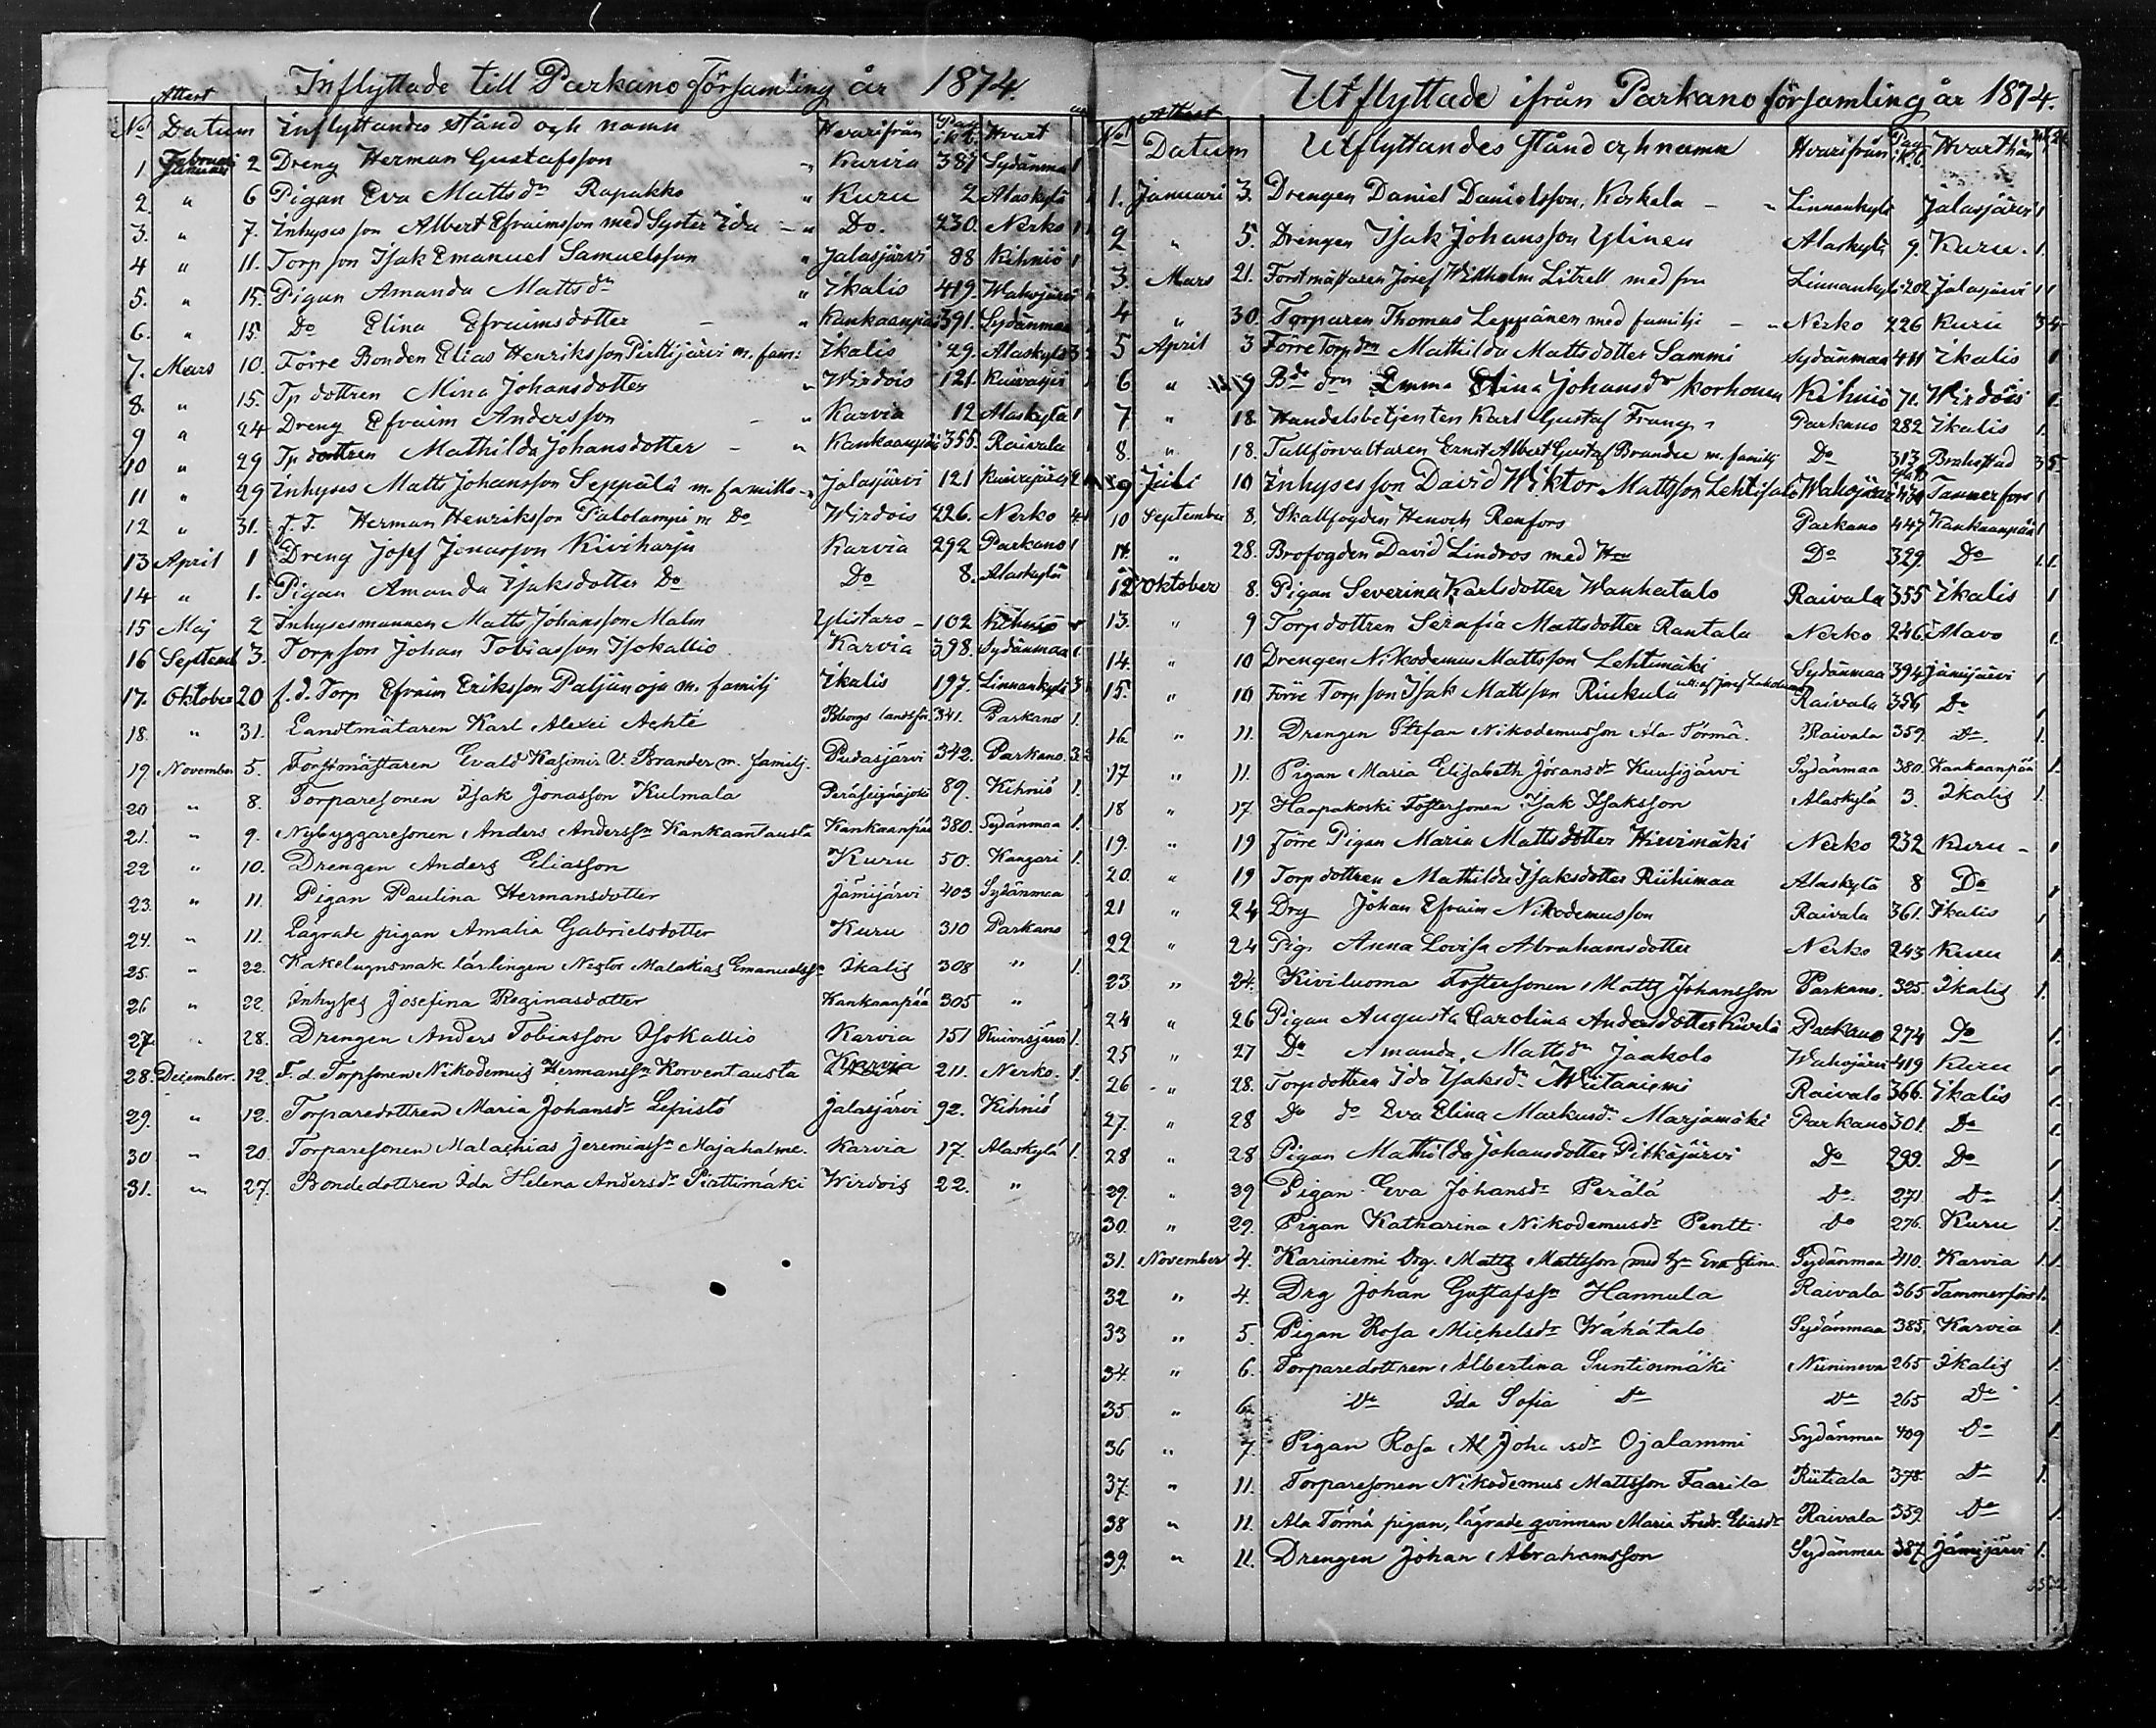 Inflyttade till Parkano församling år 1874.
Attest
No Datum Inflyttandes stånd och namn Hvarifrån Pag. i K.b. Hvart
1. Februari Januari 2 Dreng Herman Gustafsson " Karvia 387 Sydänmaa 1
2. " 6 Pigan Eva Mattsdr Rapakko " Kuru 2 Alaskylä 1
3. " 7. Inhyses son Albert Efraimsson med Syster Ida - " Do. 230. Nerko 1 1
4 " 11. Torp son Isak Emanuel Samuelsson " Jalasjärvi 88 Kihniö 1
5. " 15. Pigan Amanda Mattsdr " Ikalis 419. Wahojärvi 1
6. " 15. Do Elina Efraimsdotter - " Kankaanpää 391. Sydänmaa
7. Mars 10. Förre Bonden Elias Henriksson Pirttijärvi m. fam: Ikalis 29. Alaskylä 3
8. " 15. Tp dottren Mina Johansdotter " Wirdois 121. Kuivasjärvi
9 " 24 Dreng Efraim Andersson - " Karvia 12 Alaskylä 1
10 " 29 Tp dottren Mathilda Johansdotter - " Kankaanpää 355. Raivala
11 " 29 Inhyses Matts Johansson Seppälä m. familie - " Jalasjärvi 121 Kuivasjärvi 2
12 " 31. f.T. Herman Henriksson Palolampi m Do Wirdois 226. Nerko 4
13 April 1 Dreng Josef Jonasson Kiviharju Karvia 292 Parkano 1
14 " 1. Pigan Amanda Isaksdotter Do Do 8. Alaskylä
15 Maj 2 Inhysesmannen Matts Johansson Malm Ylistaro - 102 Kihniö
16 Septemb 3. Torpson Johan Tobiasson Isokallio Karvia 398. Sydänmaa 1.
17. Oktober 20 f.d. Torp Efraim Eriksson Paljunoja m. familj Ikalis 197. Linnankylä 3
18. " 31. Landtmätaren Karl Alexei Achte Bborgs landsförs. 341. Parkano 1.
19 November 5. Forstmästaren Evald Kasimir V. Brander m. familj. Pudasjärvi 342. Parkano. 3
20 " 8. Torparesonen Isak Jonasson Kulmala Peräseinäjoki 89. Kihniö 1.
21. " 9. Nybyggaresonen Anders Anderssn Kankaantausta Kankaanpää 380. Sydänmaa 1.
22 " 10. Drengen Anders Eliasson Kuru 50. Kangari 1.
23. " 11. Pigan Paulina Hermansdotter Jämijärvi 403 Sydänmaa
24. " 11. Lägrade pigan Amalia Gabrielsdotter Kuru 310 Parkano
25. " 22. Kakelugnsmak. lärlingen Nestor Malakias Emanuelssn Ikalis 308 " 1.
26 " 22 Inhyses Josefina Reginasdotter Kankaanpää 305 "
27. " 28. Drengen Anders Tobiasson Isokallio Karvia 151 Kuivasjärvi 1.
28. December. 12. F.d. Torpsonen Nikodemus Hermanssn Korventausta Karvia 211. Nerko. 1.
29. " 12. Torparedottren Maria Johansdr Lepistö Jalasjärvi 92. Kihniö
30 " 20. Torparesonen Malachias Jeremiassn Majahalme. Karvia 17. Alaskylä 1.
31. " 27. Bondedottren Ida Helena Andersdr Pirttimäki Wirdois 22. "
Utflyttade ifrån Parkano församling år 1874.
Attest
No Datum Utflyttandes stånd och namn Hvarifrån Pag i K.b. Hvarthän
1. Januari 3. Drengen Daniel Danielsson, Koskela - " Linnankylä Jalasjärvi 1
2 " 5. Drengen Isak Johansson Ylinen Alaskylä 9. Kuru. 1.
3. Mars 21. Forstmästaren Josef Wilhelm Litzell med fru Linnankylä 202 Jalasjärvi 1 1
4 " 30. Torparen Thomas Leppänen med familj - " Nerko 226 Kuru 3 4
5 April 3 Förre Torpdrn Mathilda Mattsdotter Sammi Sydänmaa 411 Ikalis 1
6 " 9 Bde drn Emma Elina Johansdr Korhonen Kihniö 71. Wirdois 1.
7 " 18. Handelsbetjenten Karl Gustaf Frang Parkano 282 Ikalis 1.
8. " 18. Tullförvaltaren Ernst Albert Gustaf Brander m. familj Do 313 Brahestad 3 5
9 Juli 10 Inhyses son David Wiktor Mattsson Lehtisalo Wahojärvi 430 Tammerfors 1
10 September 8. Skallfogden Henoch Renfors Parkano 447 Kankaanpää 1
11. " 28. Brofogden David Lindros med Hu Do 329. Do 1.1.
12 Oktober 8. Pigan Severina Karlsdotter Wanhatalo Raivala 355 Ikalis 1
13. " 9 Torpdottren Serafia Mattsdotter Rantala Nerko 246. Alavo 1.
14. " 10 Drengen Nikodemus Mattsson Lehtimäki Sydänmaa 394 Jämijärvi 1
15. " 10 Förre Torpson Isak Mattsson Riukula Raivala 356 Do 1
16. " 11. Drengen Stefan Nikodemusson Ala Törmä. Raivala 359. Do 1.
17 " 11. Pigan Maria Elisabeth Jöransdr Kuusijärvi Sydänmaa 380. Kankaanpää 1.
18 " 17. Haapakoski Fostersonen Isak Isaksson Alaskylä 3. Ikalis 1.
19. " 19 Förre Pigan Maria Mattsdotter Hirvimäki Nerko 232 Kuru - 1
20. " 19 Torpdottren Mathilda Isaksdotter Riihimaa Alaskylä 8 Do 1
21 " 24 Drg Johan Efraim Nikodemusson Raivala 361. Ikalis 1
22 " 24 Pig. Anna Lovisa Abrahamsdotter Nerko 243 Kuru 1.
23 " 24. Kiviluoma Fostersonen Matts Johansson Parkano. 325. Ikalis 1.
24 " 26 Pigan Augusta Carolina Andersdotter Kivelä Parkano 274 Do 1.
25 " 27 Do Amanda Mattsdr Jaakola Wahojärvi 419 Kuru 1
26 " 28. Torpdottren Ida Isaksdr Wiitaniemi Raivala 366. Ikalis 1.
27. " 28 Do do Eva Elina Markusdr Marjamäki Parkano 301. Do 1.
28 " 28 Pigan Mathilda Johansdotter Pitkäjärvi Do 299. Do 1
29. " 29 Pigan Eva Johansdr Perälä Do 271. Do 1.
30. " 29. Pigan Katharina Nikodemusdr Pentti Do 276. Kuru 1.
31. November 4. Kariniemi Drg. Matts Mattsson med Hu Eva Stina. Sydänmaa 410. Karvia 1.1.
32 " 4. Drg Johan Gustafssn Hannula Raivala 365 Tammerfors 1.
33 " 5. Pigan Rosa Michelsdr Wähätalo Sydänmaa 385. Karvia 1.
34. " 6. Torparedottren Albertina Suntionmäki Niinineva 265 Ikalis 1.
35 " 6. Do Ida Sofia Do Do 265 Do 1.
36 " 7. Pigan Rosa Al Johansdr Ojalammi Sydänmaa 409 Do 1.
37. " 11. Torparesonen Nikodemus Mattsson Faarila Riitiala 378. Do 1.
38 " 11. Ala Törmä pigan, lägrade qvinnan Maria Fredr. Eliasdr Raivala 359. Do 1.
39. " 11. Drengen Johan Abrahamsson Sydänmaa 387. Jämijärvi 1.